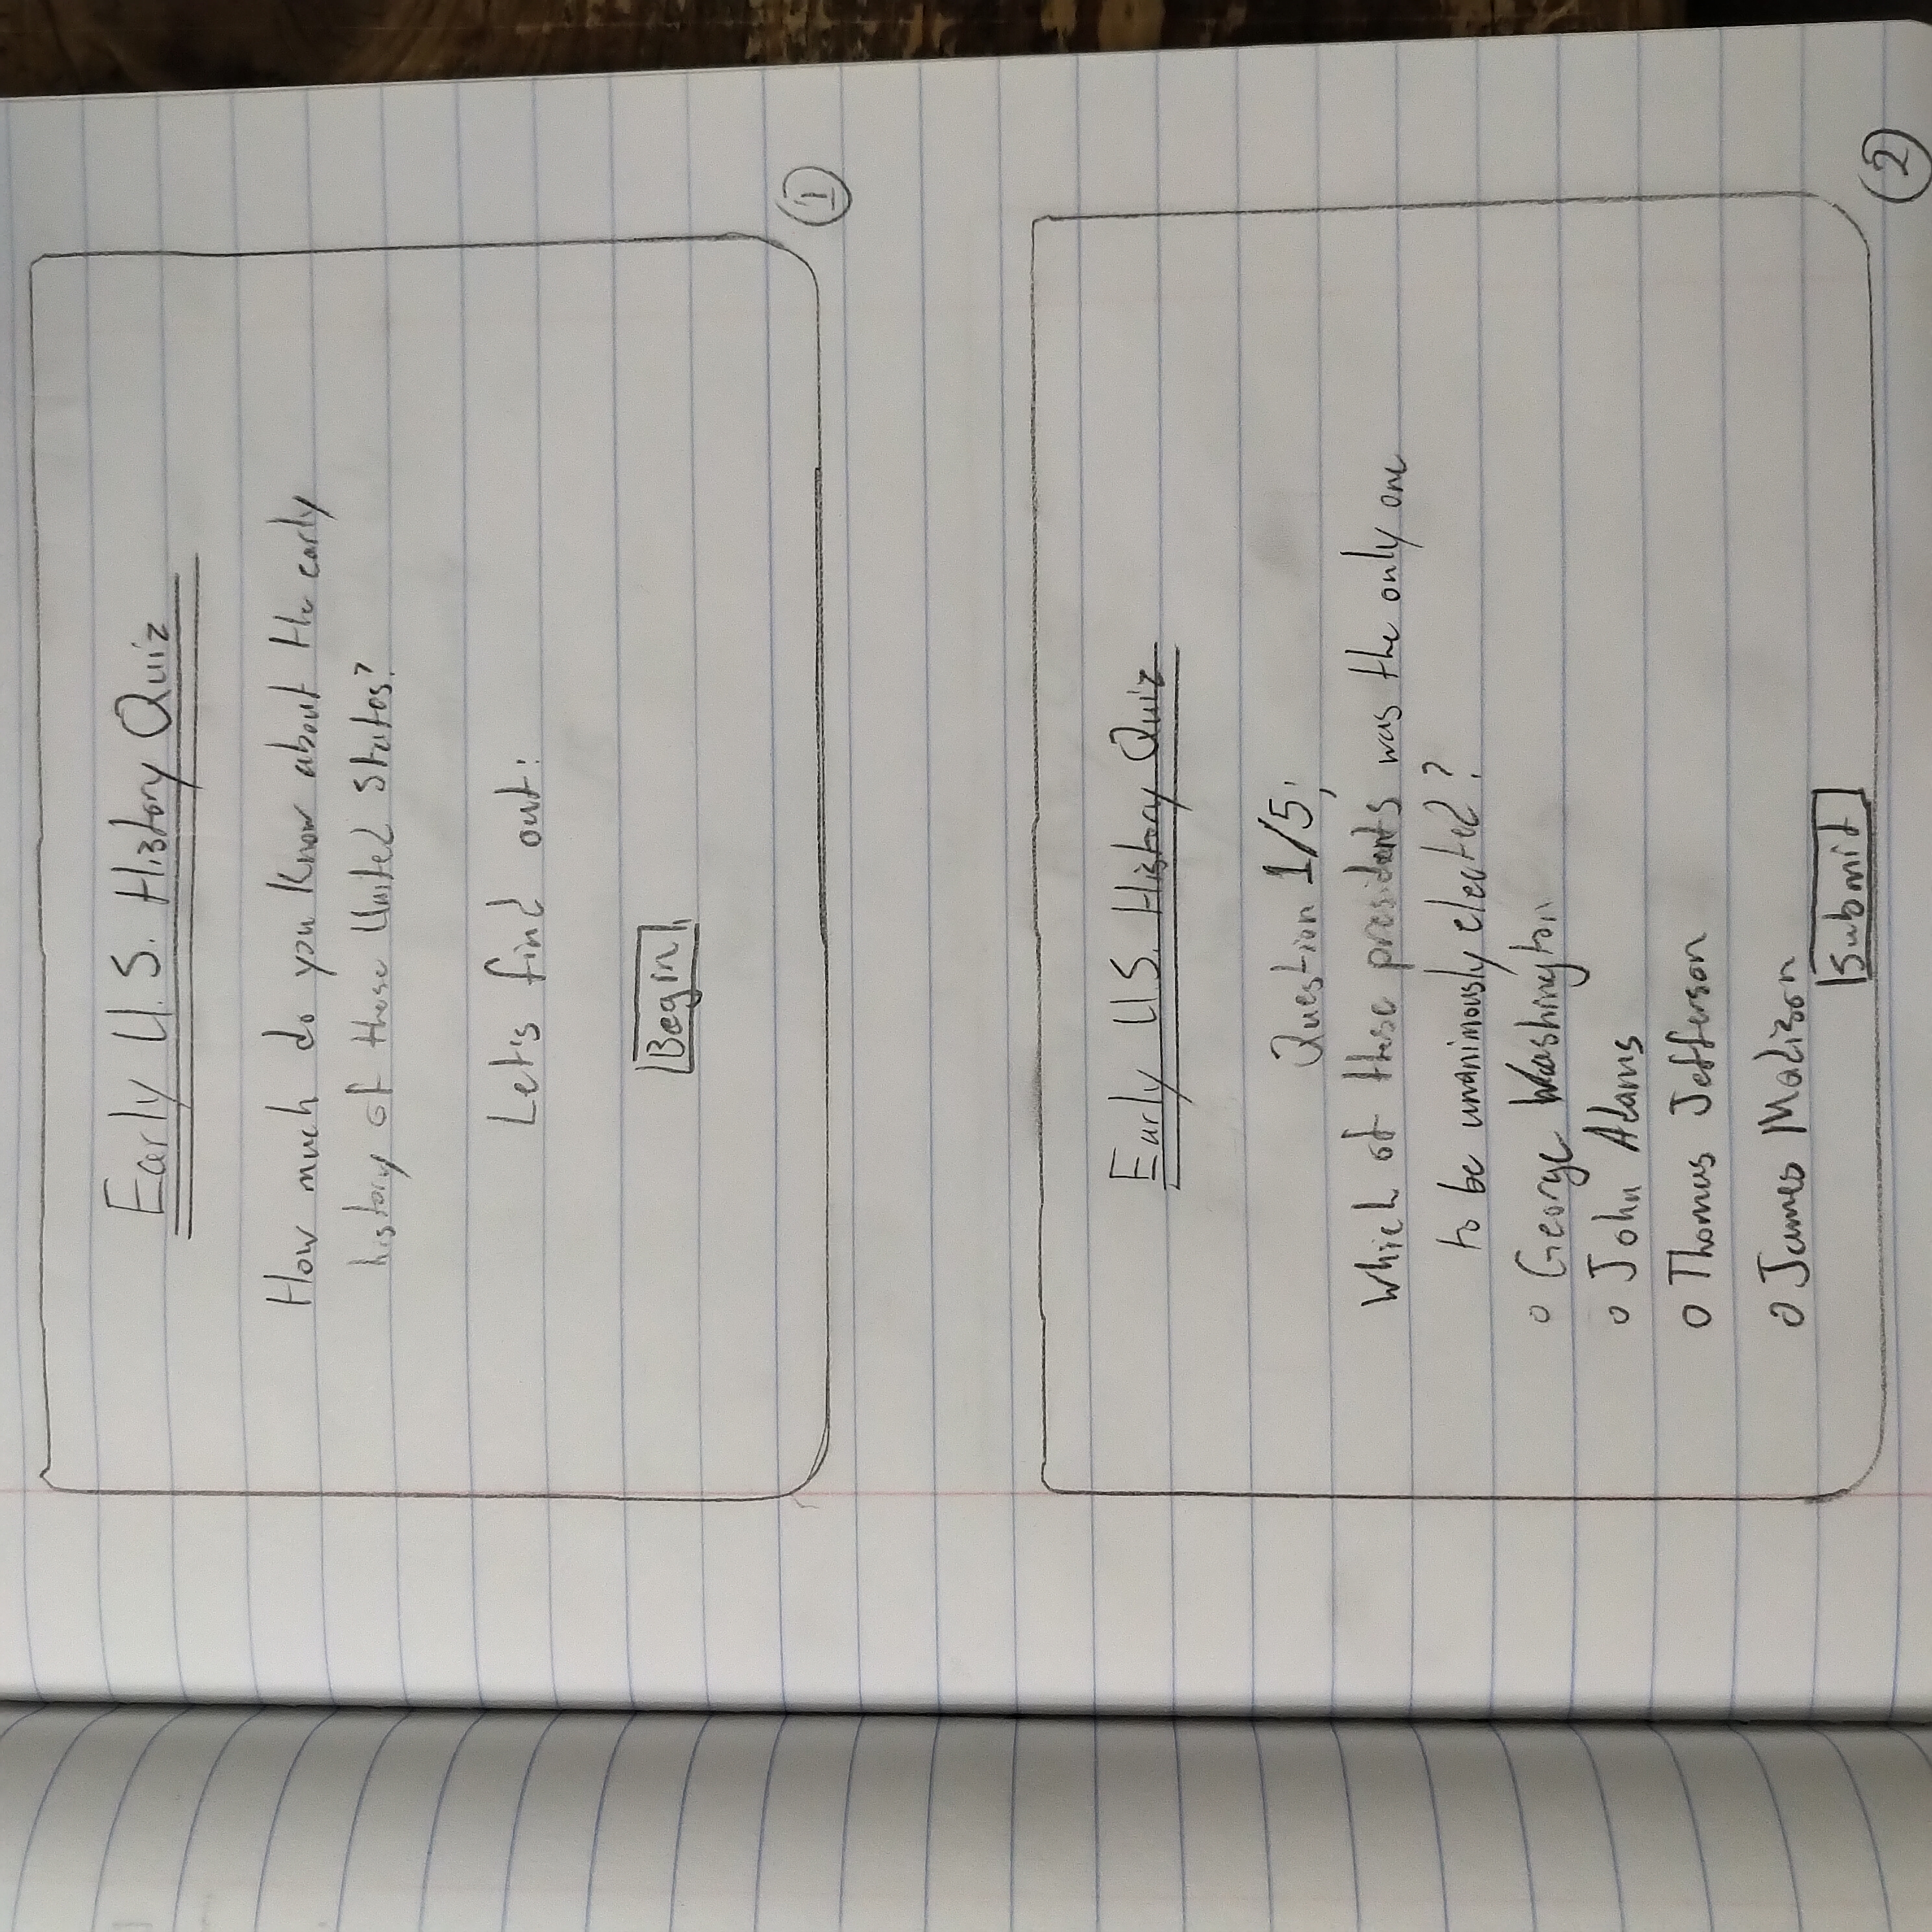 Early U.S. History Quiz
How much do you know about the early
history of these United States?
Let's find out:
Begin
1
Early U.S. History Quiz
Question 1/5;
Which of these presidents was the only one
to be unanimously elected?
○ George Washington
○ John Adams
○ Thomas Jefferson
○ James Madison
Submit
2